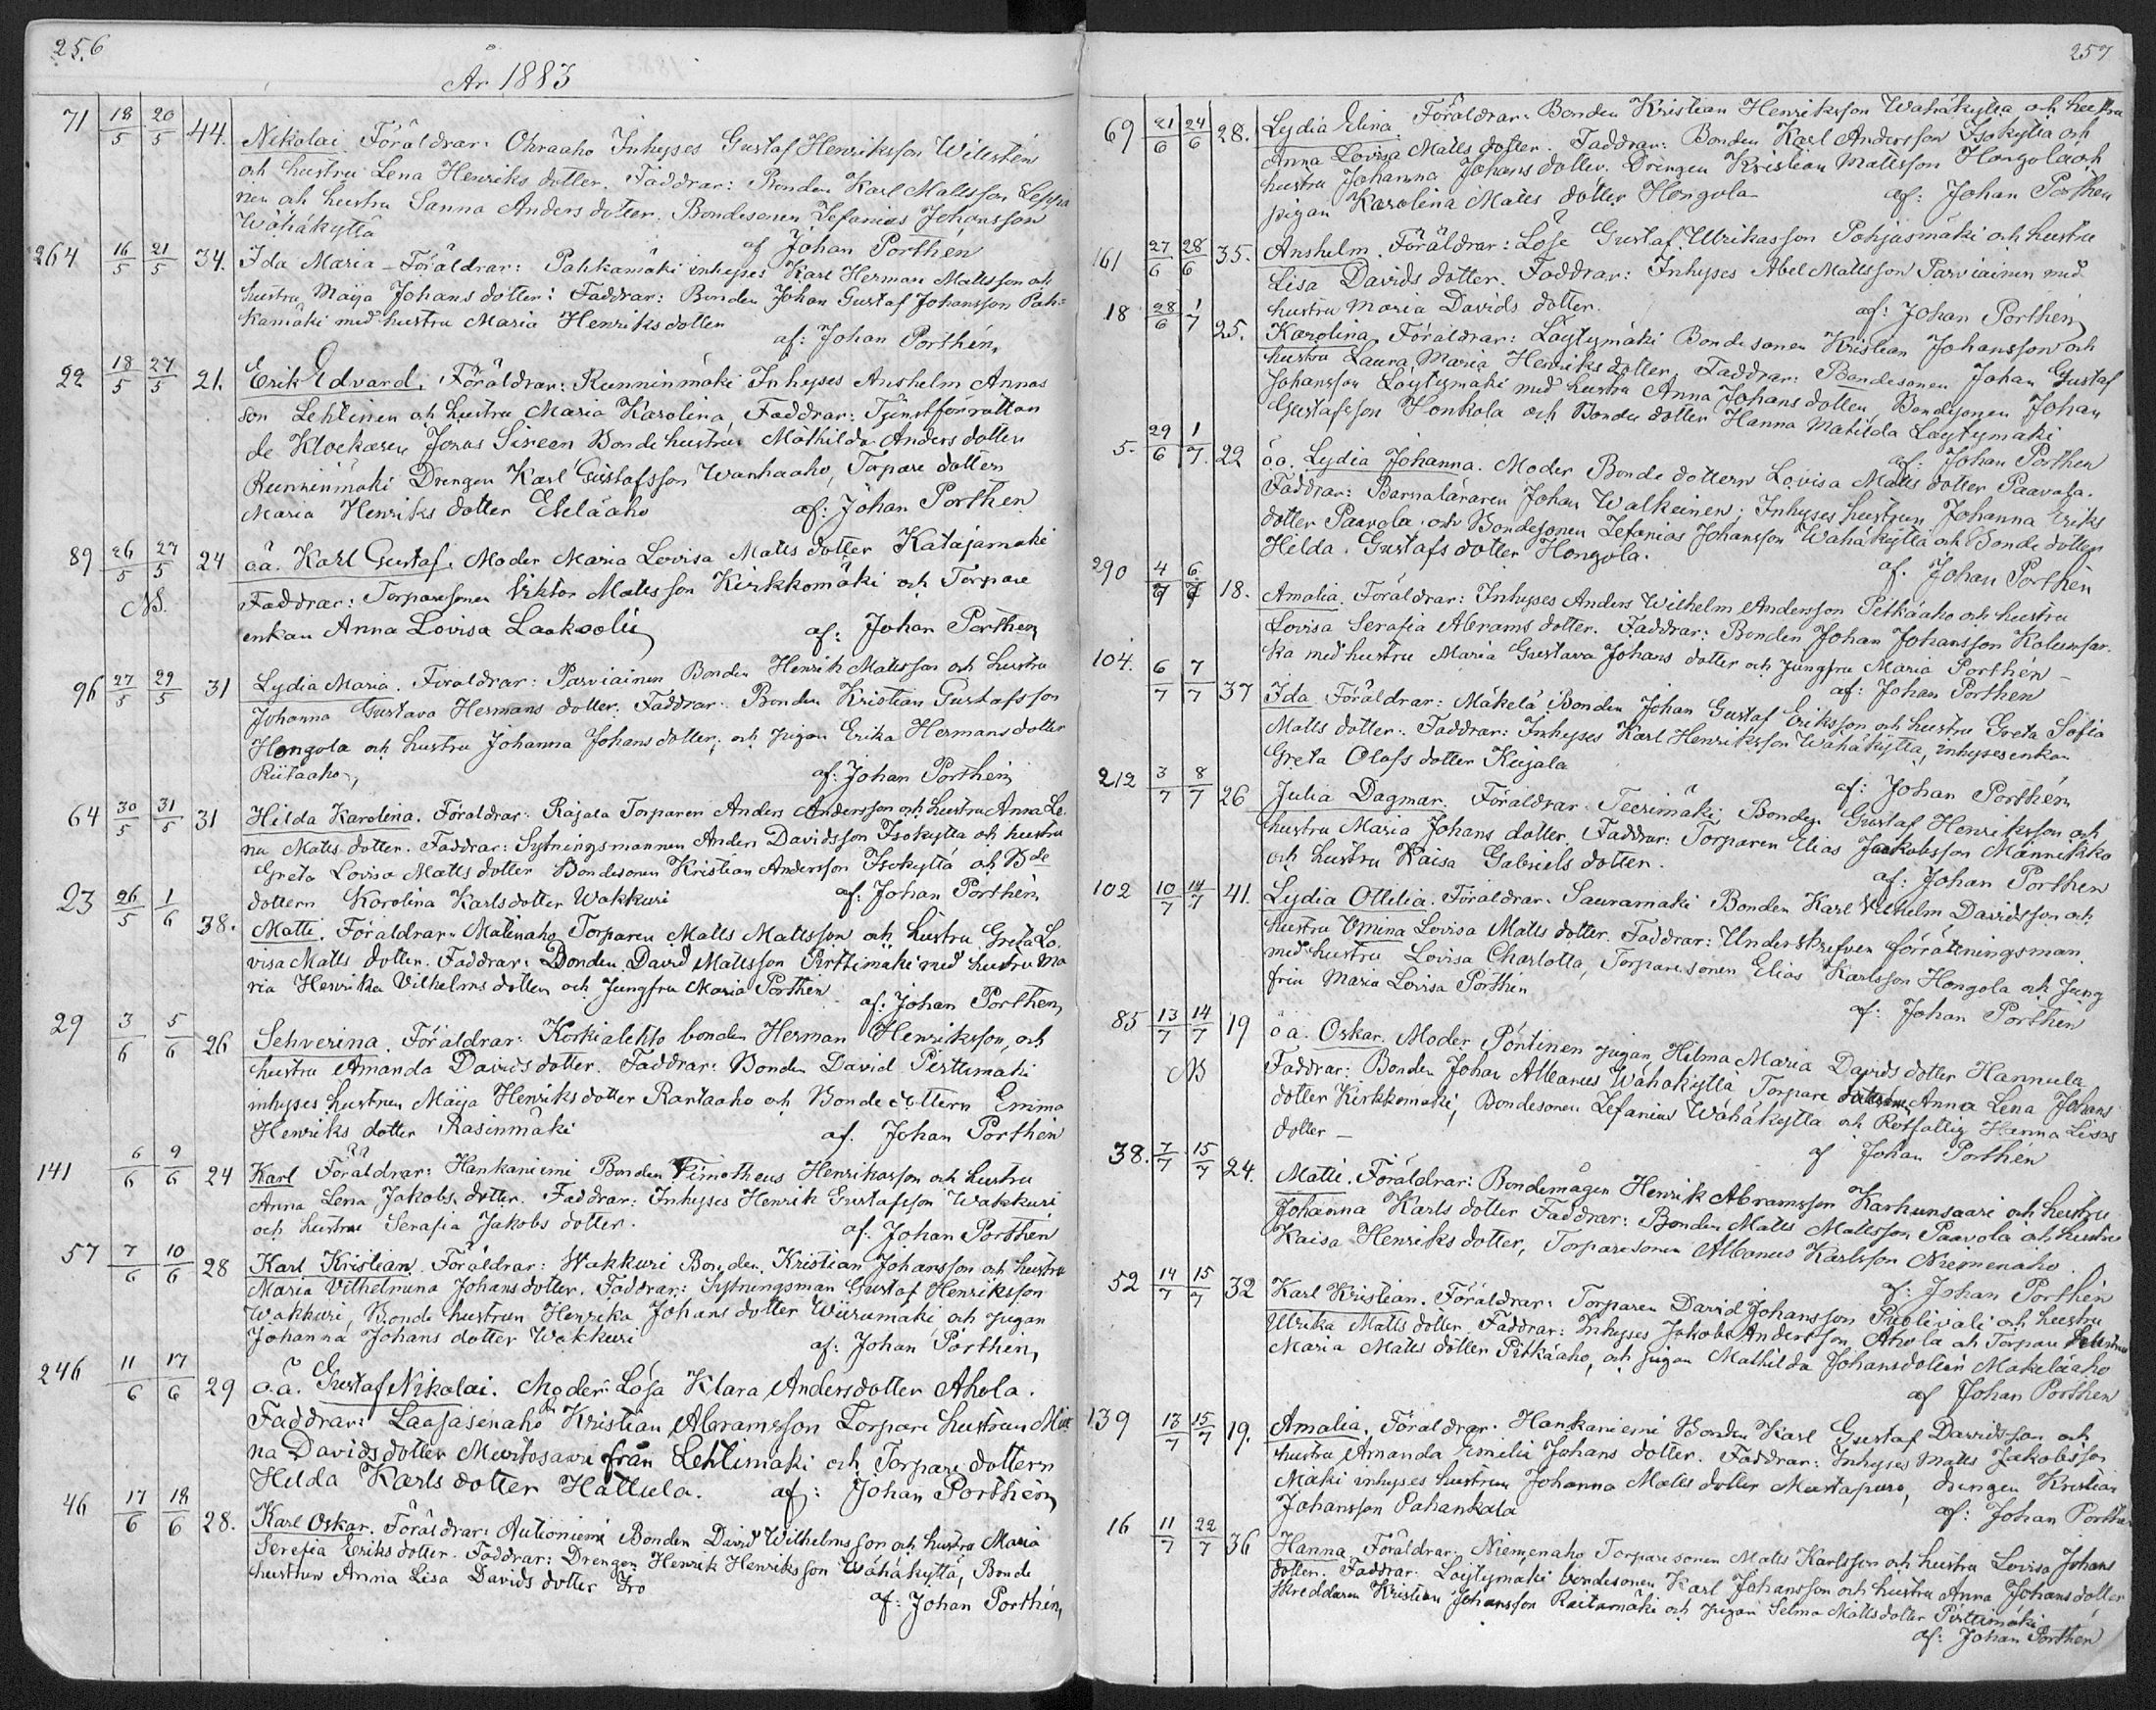 256
År 1883
71 18/5 20/5 44. Nikolai. Föräldrar: Ohraaho Inhyses Gustaf Henriksson Wilisten
och hustru Lena Henriks dotter. Faddrar: Bonden Karl Mattsson Leppä
nen och hustru Sanna Anders dotter. Bondesonen Zefanias Johansson
Wähäkyttä
af Johan Porthén
264 16/5 21/5 34. Ida Maria – Föräldrar: Pahkamäki inhyses Karl Herman Mattsson och
hustru Maija Johans dotter: Faddrar: Bonden Johan Gustaf Johansson Pah=
kamäki med hustru Maria Henriks dotter
af: Johan Porthén,
22 18/5 27/5 21. Erik Edvard. Föräldrar: Runninmäki Inhyses Anshelm Annas
son Lehtinen och hustru Maria Karolina, Faddrar: Tjenstförrättan
de Klockaren Jonas Sireen Bonde hustrun Mathilda Anders dotter
Runninmäki Drengen Karl Gustafsson Wanhaaho, Torpare dottern
Maria Henriks dotter Eteläaho af: Johan Porthén
89 26/5 27/5 24 o.ä. Karl Gustaf. Moder Maria Lovisa Matts dotter Katajamäki
NB. Faddrar: Torparesonen Viktor Mattsson Kirkkomäki och Torpare
enkan Anna Lovisa Laakoolii af: Johan Porthén
96 27/5 29/5 31 Lydia Maria. Föräldrar: Parviainen Bonden Henrik Mattsson och hustru
Johanna Gustava Hermans dotter. Faddrar: Bonden Kristian Gustafsson
Hongola och hustru Johanna Johans dotter, och pigan Erika Hermans dotter
Riitaaho, af: Johan Porthén
64 30/5 31/5 31 Hilda Karolina. Föräldrar: Rajala Torparen Anders Andersson och hustru Anna Le
na Matts dotter. Faddrar: Sytningsmannen Anders Davidsson Isokyttä och hustru
Greta Lovisa Matts dotter Bondesonen Kristian Andersson Isokyttä och Bde
dottern Karolina Karls dotter Wakkuri af: Johan Porthén
23 26/5 1/6 38. Matti. Föräldrar: Matinaho Torparen Matts Mattsson och hustru Greta Lo.
visa Matts dotter. Faddrar: Bonden David Mattsson Pirttimäki med hustru Ma
ria Henrika Vilhelms dotter och Jungfru Maria Porthén
af: Johan Porthén,
29 3/6 5/6 26 Sehverina. Föräldrar: Korkialehto bonden Herman Henriksson, och
hustru Amanda Davids dotter. Faddrar: Bonden David Pirttimäki
inhyses hustrun Maija Henriks dotter Rantaaho och Bonde dottern Emma
Henriks dotter Rasinmäki af. Johan Porthén
141 6/6 9/6 24 Karl Föräldrar: Hankaniemi Bonden Timotheus Henriksson och hustru
Anna Lena Jakobs dotter. Faddrar: Inhyses Henrik Gustafsson Wakkuri
och hustru Serafia Jakobs dotter. af. Johan Porthén
57 7/6 10/6 28 Karl Kristian. Föräldrar: Wakkuri Bonden Kristian Johansson och hustru
Maria Vilhelmina Johans dotter. Faddrar: Sytningsman Gustaf Henriksson
Wakkuri, Bonde hustrun Henrika Johans dotter Wiirumäki och pigan
Johanna Johans dotter Wakkuri af: Johan Porthén,
246 11/6 17/6 29 o.ä. Gustaf Nikolai. Moder: Lösa Klara Anders dotter Ahola.
Faddrar: Laajasenaho Kristian Abramsson Torpare hustrun Mii
na Davids dotter Murtosaari från Lehtimäki och Torpare dottern
Hilda Karls dotter Hattula. af: Johan Porthén
46 17/6 18/6 28. Karl Oskar. Föräldrar: Autioniemi Bonden David Wilhelmsson och hustru Maria
Serefia Eriks dotter. Faddrar: Drengen Henrik Henriksson Wähäkyttä, Bonde
hustrun Anna Lisa Davids dotter Iro
af: Johan Porthén,
257
69 21/6 24/6 28. Lydia Elina. Föräldrar: Bonden Kristian Henriksson Wähäkyttä och hustru
Anna Lovisa Matts dotter. Faddrar: Bonden Karl Andersson Isokyttä och
hustru Johanna Johans dotter. Drengen Kristian Mattsson Hongola och
pigan Karolina Matts dotter Hongola af: Johan Porthén
161 27/6 28/6 35. Anshelm. Föräldrar: Löse Gustaf Ulrikasson Pohjasmäki och hustru
Lisa Davids dotter. Faddrar: Inhyses Abel Mattsson Parviainen med
hustru Maria Davids dotter. af: Johan Porthén
18 28/6 1/7 25. Karolina. Föräldrar: Löytymäki Bondesonen Kristian Johansson och
hustru Laura Maria Henriks dotter. Faddrar: Bondesonen Johan Gustaf
Johansson Löytymäki med hustru Anna Johans dotter, Bondesonen Johan
Gustafsson Honkola och Bonde dotter Hanna Matilda Löytymäki
af: Johan Porthén
5. 29/6 1/7. 22 o.ä. Lydia Johanna. Moder Bonde dottern Lovisa Matts dotter Paavola.
Faddrar: Barnaläraren Johan Walkeinen, Inhyses hustrun Johanna Eriks
dotter Paavola och Bondesonen Zefanias Johansson Wähäkyttä och Bonde dottern
Hilda Gustafs dotter Hongola. af. Johan Porthén
290 4/7 6/7 18. Amalia. Föräldrar: Inhyses Anders Wilhelm Andersson Pitkäaho och hustru
Lovisa Serafia Abrams dotter. Faddrar: Bonden Johan Johansson
ka med hustru Maria Gustava Johans dotter och Jungfru Maria Porthén –
af: Johan Porthén
104. 6/7 7/7 37 Ida Föräldrar: Mäkelä Bonden Johan Gustaf Eriksson och hustru Greta Sofia
Matts dotter. Faddrar: Inhyses Karl Henriksson Wähäkyttä, inhysesenkan
Greta Olofs dotter Kujala
af: Johan Porthén
212 3/7 8/7 26 Julia Dagmar. Föräldrar Teerimäki Bonden Gustaf Henriksson och
hustru Maria Johans dotter. Faddrar: Torparen Elias Jaakobsson Männikko
och hustru Kaisa Gabriels dotter.
af: Johan Porthén
102 10/7 14/7 41. Lydia Ottilia. Föräldrar. Sauramäki Bonden Karl Vilhelm Davidsson och
hustru Lovisa Matts dotter. Faddrar: Underskrifven förrättningsman
med hustru Lovisa Charlotta, Torparesonen Elias Karlsson Hongola och Jung
frun Maria Lovisa Porthén
af: Johan Porthén
85 13/7 14/7 19 o ä. Oskar. Moder Pöntinen pigan, Hilma Maria Davids dotter Hannula
NB Faddrar: Bonden Johan Albanus Wähäkyttä Torpare Anna Lena Johans
dotter Kirkkomäki, Bondesonen Zefanias Wähäkyttä och Rotfattig Hanna Lisas
dotter –
af Johan Porthén
38. 7/7 15/7 24. Matti. Föräldrar: Bondemågen Henrik Abramsson Karhunsaari och hustru
Johanna Karls dotter Faddrar: Bonden Matts Mattsson Paavola och hustru
Kaisa Henriks dotter, Torparesonen Albanus Karlsson Niemenaho.
af: Johan Porthén
52 14/7 15/7 32 Karl Kristian. Föräldrar: Torparen David Johansson Puolivali och hustru
Ulrika Matts dotter Faddrar: Inhyses Jakob Andersson Ahola och Torpare hustrun
Maria Matts dotter Pitkäaho, och pigan Mathilda Johans dotter Mäkeläaho
af Johan Porthén
139 13/7 15/7 19. Amalia. Föräldrar: Hankaniemi Bonden Karl Gustaf Davidsson och
hustru Amanda Emilia Johans dotter. Faddrar: Inhyses Matts Jakobsson
Mäki inhyses hustrun Johanna Matts dotter Mustapuro, drengen Kristian
Johansson Pahankala af: Johan Porthén
16 11/7 22/7 36 Hanna. Föräldrar: Niemenaho Torparesonen Matts Karlsson och hustru Lovisa Johans
dotter. Faddrar: Löytymäki bondesonen Karl Johansson och hustru Anna Johans dotter
Skreddaren Kristian Johansson Raitamäki och pigan Selma Matts dotter Pirttimäki
af: Johan Porthén